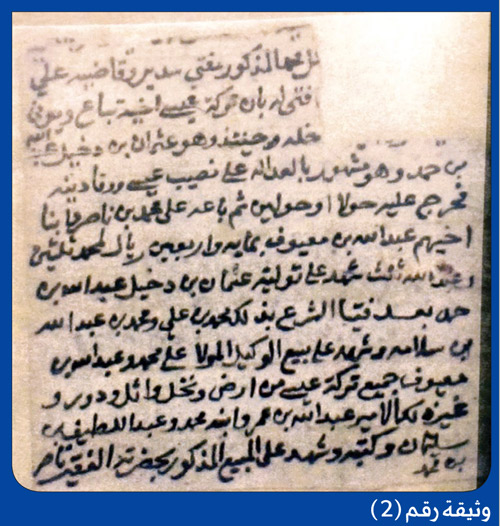 محمد المذكور مفتي سدير وقاضيه علي
افتى له بان تركة عيسى اخيه تباع ويوفي
وحينئذ وهو عثمان بن دخيل عبد الله
من حمد وهو مشهور بالعدالة على نصيب عيسى ووفا دينه
فحرج عليه حولا او حولين ثم باعه على محمد بن ناصر
اخيهم عبدالله بن معيوف بماية واربعين ريال لمحمد ثلثين
وعبدالله ثلث شهد على تولية عثمان بن دخيل عبدالله بن
حمد بعد فتيا الشرع بذلك محمد بن علي ومحمد بن عبدالله
بن سلامه وشهد على بيع الوكيل المولا على محمد وعبدالله بن
معيوف جميع تركة عيسى من ارض ونخل واثل ودور و
غيره كما الامير عبدالله بن عمر وابنه محمد وعبداللطيف بن
سليمان وكتبه وشهد على المبيع المذكور بحضرته الفقير ناصر
بن محمد
وثيقة رقم (2)